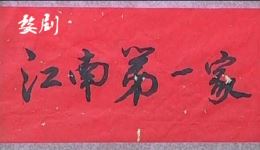 婺剧
江南第一家